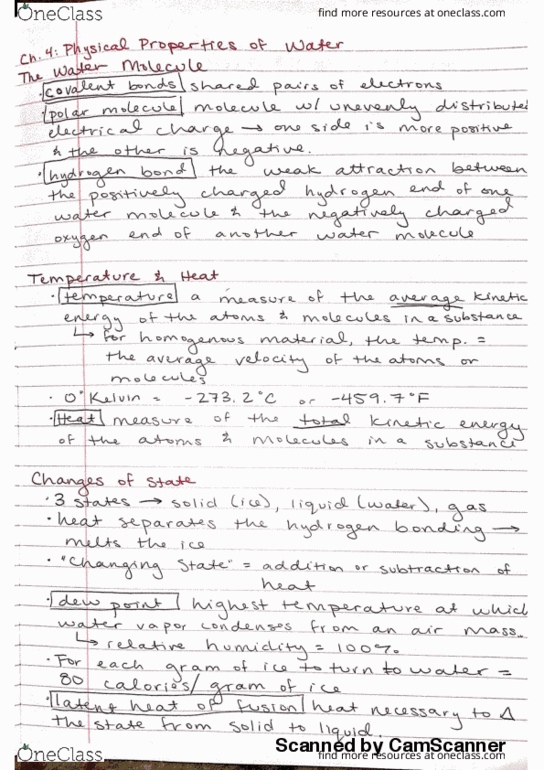 OneClass
find more resources at oneclass.com
Ch. 4: Physical Properties of Water
The Water Molecule
· covalent bonds shared pairs of electrons
· polar molecule molecule w/ unevenly distributed
electrical charge → one side is more positive
& the other is negative.
· hydrogen bond the weak attraction between
the positively charged hydrogen end of one
water molecule & the negatively charged
oxygen end of another water molecule
Temperature & Heat
· temperature a measure of the average kinetic
energy of the atoms & molecules in a substance
↳ for homogenous material, the temp. =
the average velocity of the atoms or
molecules
· 0° Kelvin = -273.2°C or -459.7°F
· Heat measure of the total kinetic energy
of the atoms & molecules in a substance
Changes of State
· 3 states → solid (ice), liquid (water), gas
· heat separates the hydrogen bonding →
melts the ice
· "Changing State" = addition or subtraction of
heat
· dew point highest temperature at which
water vapor condenses from an air mass.
↳ relative humidity = 100%
· For each gram of ice to turn to water =
80 calories/gram of ice
· latent heat of fusion heat necessary to Δ
the state from solid to liquid.
Scanned by CamScanner
OneClass
find more resources at oneclass.com